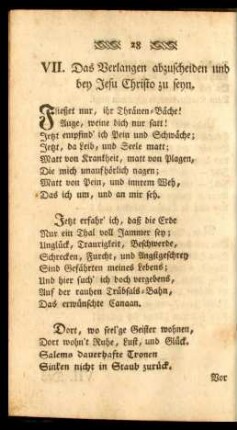 28
VII. Das Verlangen abzuscheiden und
bey Jesu Christo zu seyn.
Fließet nur, ihr Thränen-Bäche!
Auge, weine dich nur satt!
Jetzt empfind' ich Pein und Schwäche;
Jetzt, da Leib, und Seele matt;
Matt von Krankheit, matt von Plagen,
Die mich unaufhörlich nagen;
Matt von Pein, und innrem Weh,
Das ich um, und an mir seh.
Jetzt erfahr' ich, daß die Erde
Nur ein Thal voll Jammer sey;
Unglück, Traurigkeit, Beschwerde,
Schrecken, Furcht, und Angstgeschrey
Sind Gefährten meines Lebens;
Und hier such' ich doch vergebens,
Auf der rauhen Trübsals-Bahn,
Das erwünschte Canaan.
Dort, wo seel'ge Geister wohnen,
Dort wohn't Ruhe, Lust, und Glück.
Salems dauerhafte Tronen
Sinken nicht in Staub zurück.
Wor